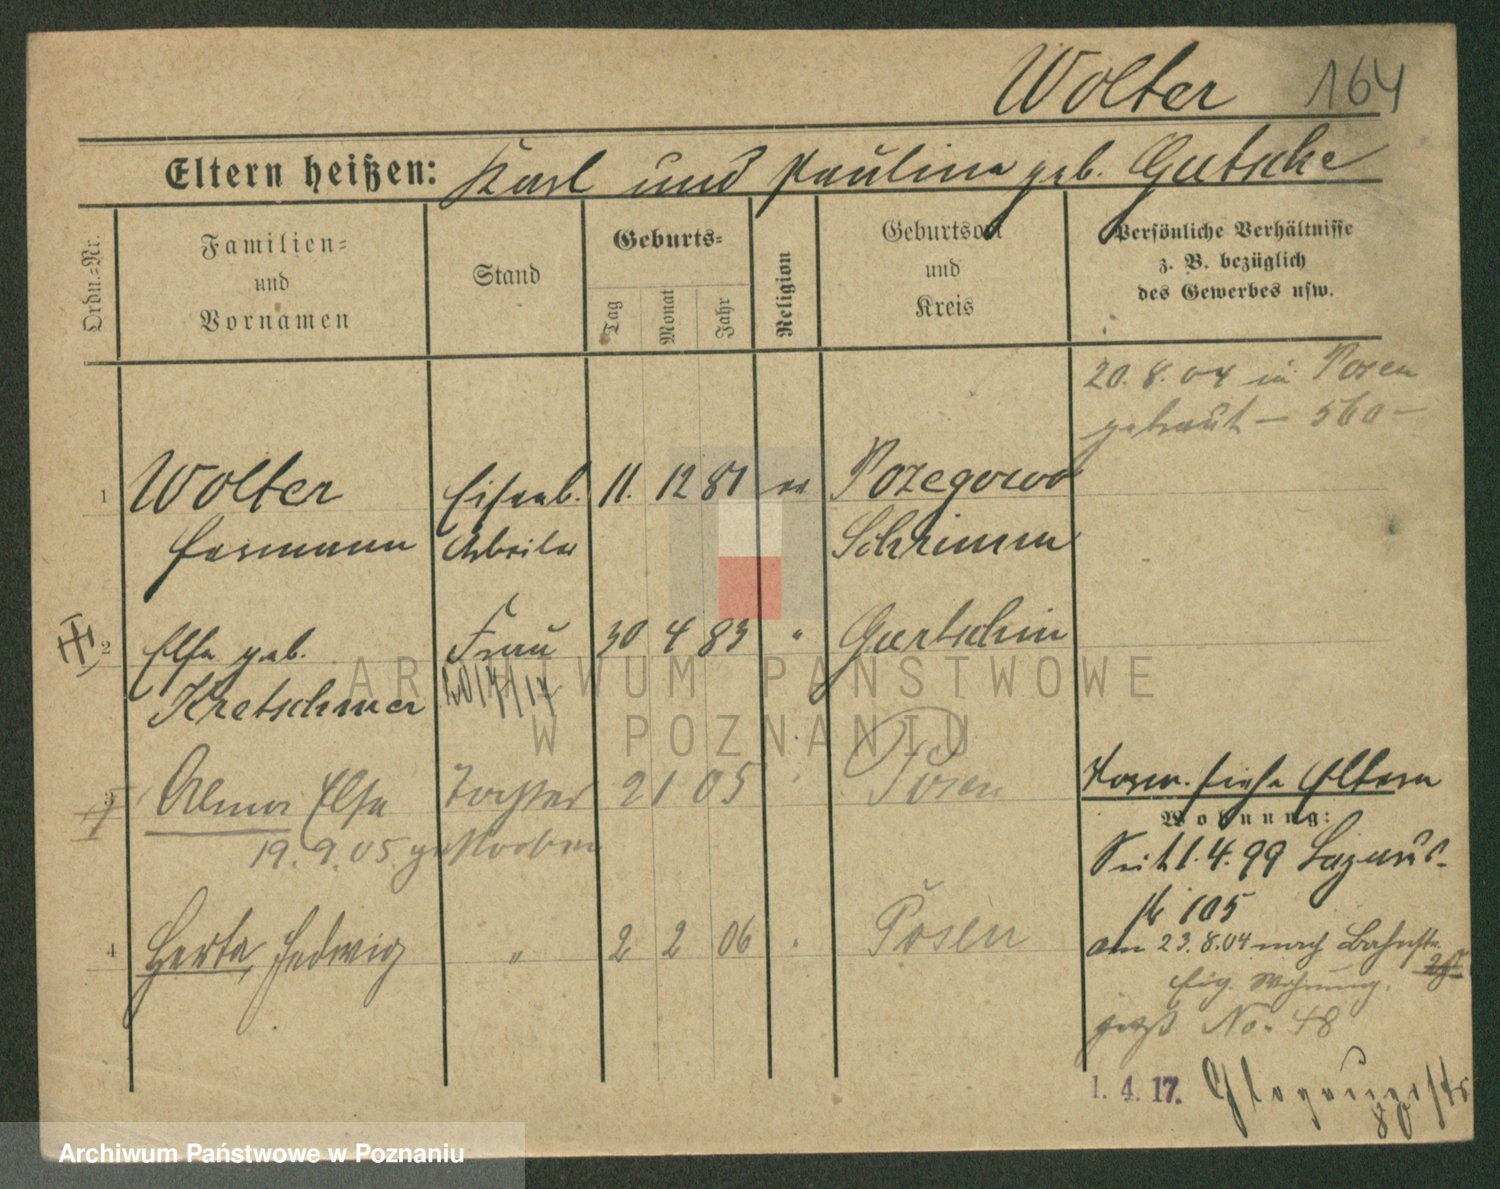 Wolter 164
Eltern heißen: Karl und Paulina geb. Gutsche
Ordn.-Nr.
Familien-
und
Vornamen
Stand
Geburts-
Tag
Monat
Jahr
Religion
Geburtsort
und
Kreis
Persönliche Verhältnisse
z. B. bezüglich
des Gewerbes usw.
20. 8. 04 in Posen
getraut – 560 –
1 Wolter Eisenb. 11. 12 81 Pozegowo
Hermann Arbeiter Schrimm
2 Else geb. Frau 30 4 83 " Gurtschin
Kretschmer
3 Alma Else Tochter 2 1 05 " Posen
19. 9. 05 gestorben
4 Herta, Hedwig " 2 2 06 " Posen
Vorw. siehe Eltern
Wohnung:
Seit 1. 4. 99 Lazarus-
105
am 23. 8. 04 nach Bahnstr.
Eig. Wohnung.
jetzt No. 48
1. 4. 17. Glogauerstr.
80
ARCHIWUM PAŃSTWOWE
W POZNANIU
Archiwum Państwowe w Poznaniu